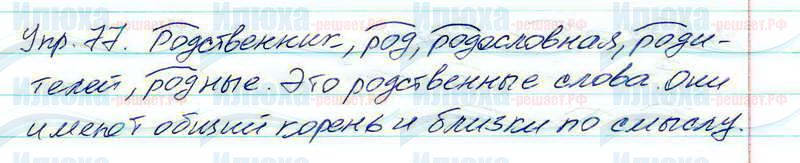 Упр. 77. Родственник, род, родословная, роди-
телей, родные. Это родственные слова. Они
имеют общий корень и близки по смыслу.